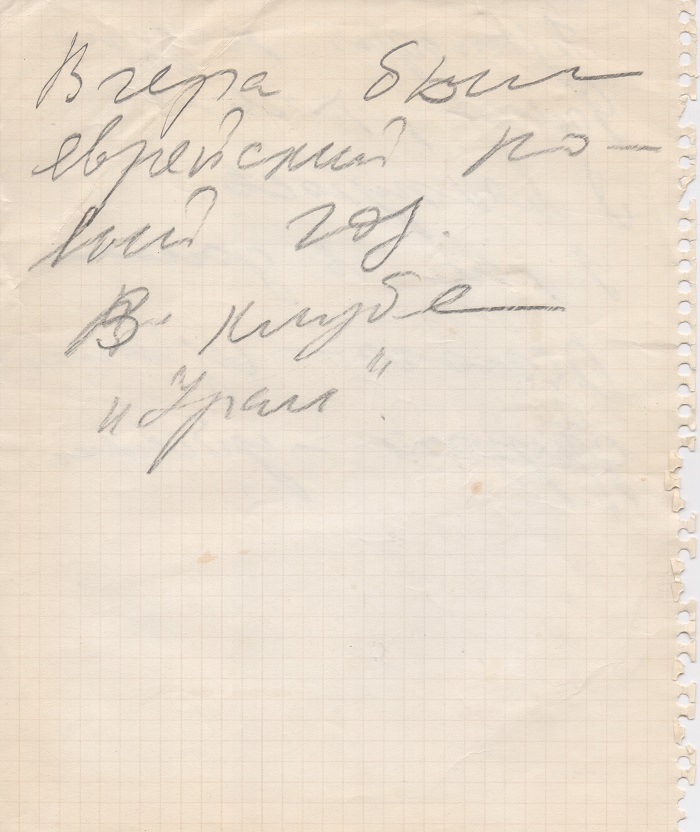 Вчера был
еврейский но-
вый год.
В клубе
"Урал".